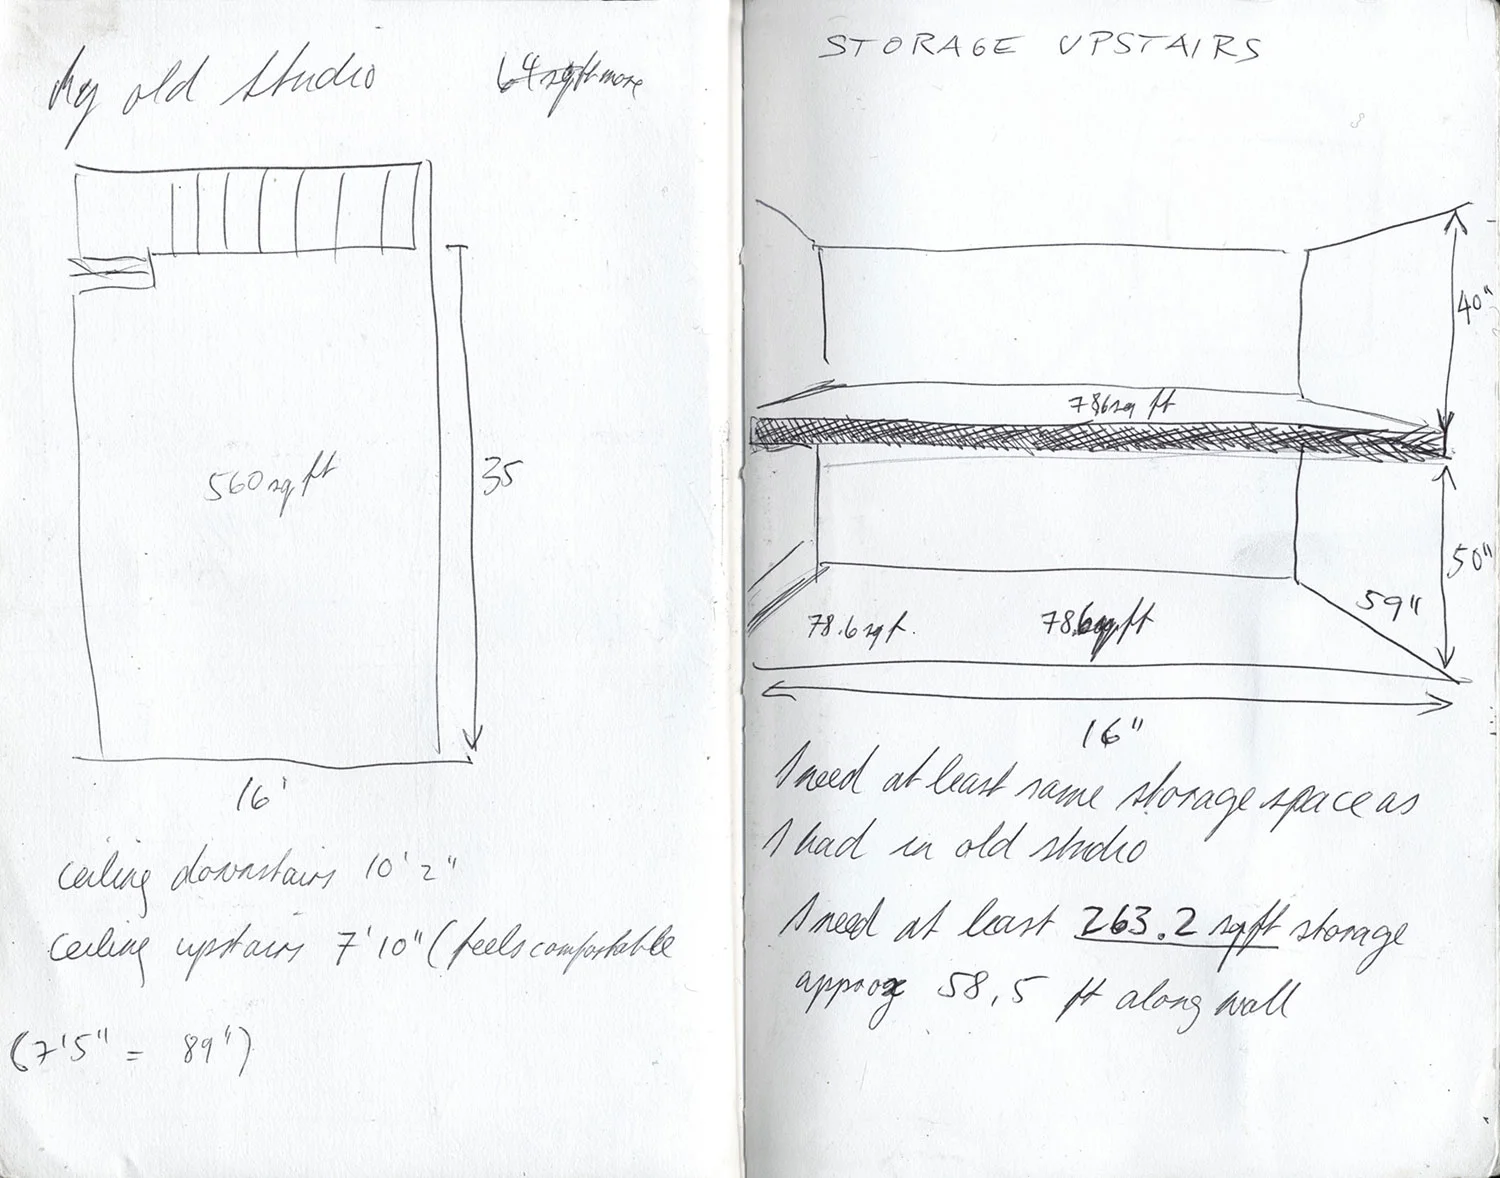 My old studio
64 sqft more
560 sq ft
35
16'
ceiling downstairs 10'2"
ceiling upstairs 7'10" (feels comfortable
(7'5" = 89")
STORAGE UPSTAIRS
40"
786sq ft
50"
59"
78.6 sq f.
78.6 sq. ft
16"
I need at least same storage space as
I had in old studio
I need at least 263.2 sqft storage
approx 58,5 ft along wall